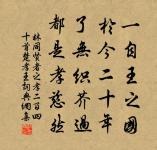 一自王之國
於今二十年
了無纖芥過
都是孝慈然
林同賢者之孝二百四
十首楚孝王詞典網集